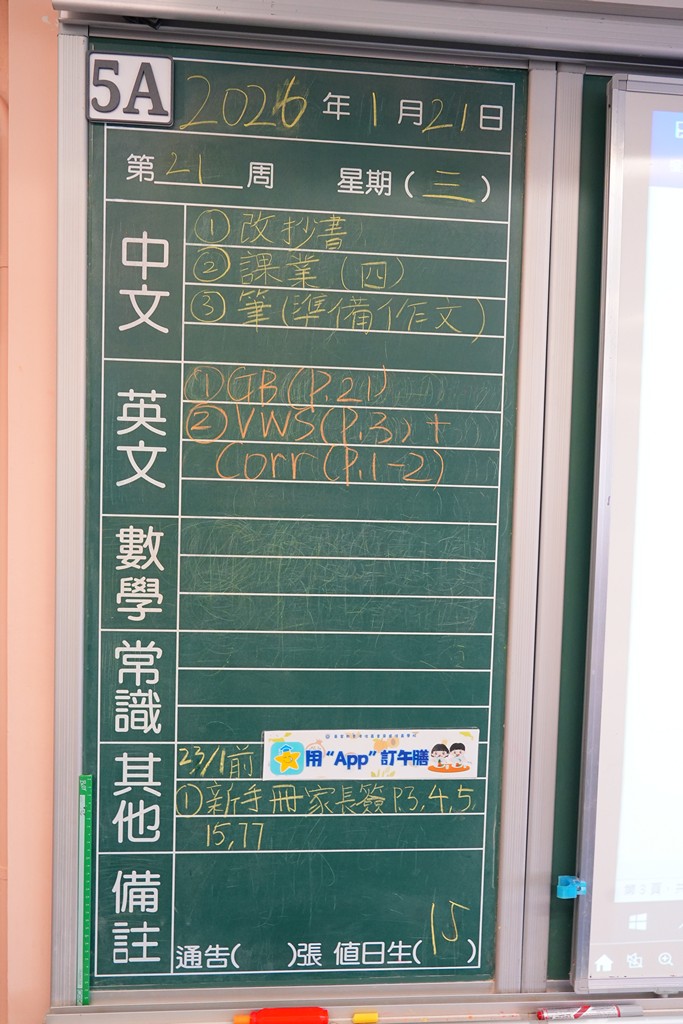 5A
2026年1月21日
第21周 星期(三)
中文
①改抄書
②課業(四)
③筆(準備作文)
英文
①GB(P.21)
②VWS(P.3)+
Corr(P.1-2)
數學
常識
其他
23/1前
用“App”訂午膳
①新手冊家長簽P.3,4,5
15,77
備註
通告( )張 值日生(15)